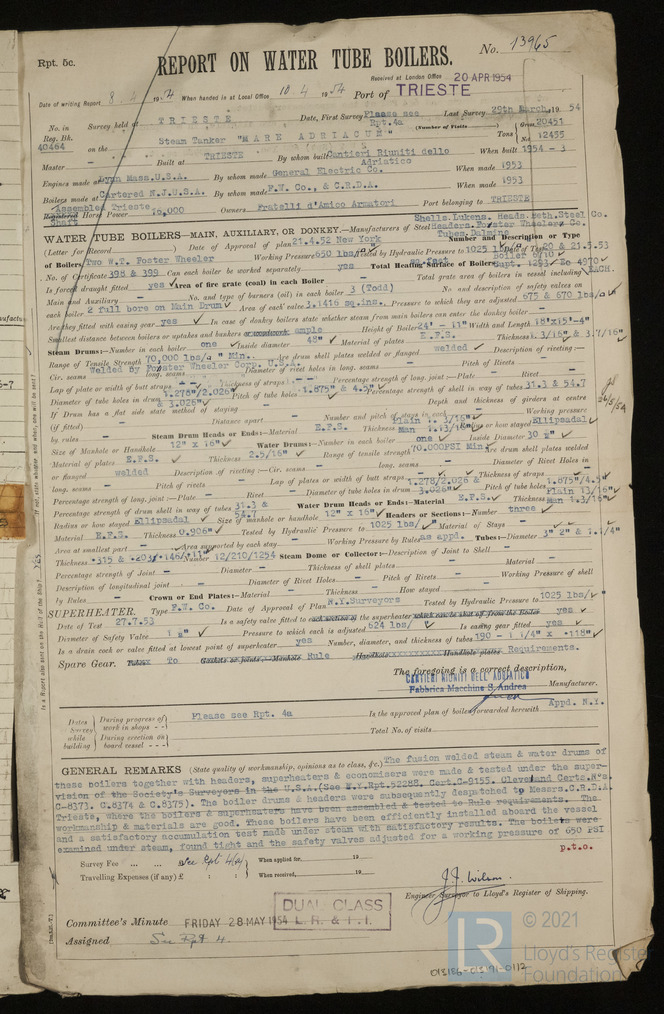 Rpt. 5c.
REPORT ON WATER TUBE BOILERS.
No. 13965
Received at London Office 20 APR 1954
Date of writing Report 1954 When handed in at Local Office 10 4 1954 Port of TRIESTE
No. in Reg. Bk. 40464
Survey held at TRIESTE Date, First Survey Please see Rpt.4a Last Survey 29th March, 1954
(Number of Visits)
on the Steam Tanker "MARE ADRIACUM" Tons Gross 20451 Net 12455
Master – Built at TRIESTE By whom built Cantieri Riuniti dello Adriatico When built 1954 - 3
Engines made at Lynn Mass.U.S.A. By whom made General Electric Co. When made 1953
Boilers made at Cartered N.J.U.S.A. By whom made F.W. Co., & C.R.D.A. When made 1953
Assembled Trieste
Shaft Horse Power Owners Fratelli d'Amico Armatori Port belonging to TRIESTE
Shells.Lukens. Heads.Beth.Steel Co.
WATER TUBE BOILERS—MAIN, AUXILIARY, OR DONKEY.—Manufacturers of Steel Headers.Forster Wheelers Co.
Tubes.Dalmine
(Letter for Record) Date of Approval of plan 21.4.52 New York Number and Description or Type
of Boilers Two W.T. Foster Wheeler Working Pressure 650 lbs Tested by Hydraulic Pressure to 1025 lbs Date of Test 20 & 23.5.53
No. of Certificate 398 & 399 Can each boiler be worked separately yes Total Heating Surface of Boilers
Is forced draught fitted yes Area of fire grate (coal) in each Boiler Total grate area of boilers in vessel including EACH.
Main and Auxiliary – No. and type of burners (oil) in each boiler 3 (Todd) No. and description of safety valves on
each boiler 2 full bore on Main Drum Area of each valve 3.1416 sq.ins. Pressure to which they are adjusted 675 & 670 lbs
Are they fitted with easing gear yes In case of donkey boilers state whether steam from main boilers can enter the donkey boiler –
Smallest distance between boilers or uptakes and bunkers or woodwork ample Height of Boiler 24' - 11" Width and Length 18'x15'-4"
Steam Drums:—Number in each boiler one Inside diameter 48" Material of plates E.F.S. Thickness
Range of Tensile Strength 70,000 lbs/□" Min. Are drum shell plates welded or flanged welded Description of riveting:—
Welded by Forster Wheeler Corp. U.S.A.
Cir. seams long. seams Diameter of rivet holes in long. seams Pitch of Rivets
Lap of plate or width of butt straps Thickness of straps Percentage strength of long. joint:—Plate Rivet
Diameter of tube holes in drum 1.278"/2.026" & 3.026" Pitch of tube holes 1.875" & 4.5" Percentage strength of shell in way of tubes 31.3 & 54.7
If Drum has a flat side state method of staying Depth and thickness of girders at centre
(if fitted) Distance apart Number and pitch of stays in each Working pressure
by rules Steam Drum Heads or Ends:—Material E.F.S. Thickness Radius or how stayed Ellipsmadal
Size of Manhole or Handhole 12" x 16" Water Drums:—Number in each boiler one Inside Diameter 30 ½"
Material of plates E.F.S. Thickness 2.5/16" Range of tensile strength 70.000PSI Min. Are drum shell plates welded
or flanged welded Description of riveting:—Cir. seams long. seams Diameter of Rivet Holes in
long. seams Pitch of rivets Lap of plates or width of butt straps Thickness of straps
Percentage strength of long. joint:—Plate Rivet Diameter of tube holes in drum 1.278/2.026 & 3.026" Pitch of tube holes 1.875"/4.5"
Percentage strength of drum shell in way of tubes 31.3 & 54.7 Water Drum Heads or Ends:—Material E.F.S. Thickness Plain 13/16" Man 1.3/16"
Radius or how stayed Ellipsmadal Size of manhole or handhole 12" x 16" Headers or Sections:—Number three
Material E.F.S. Thickness 0.906" Tested by Hydraulic Pressure to 1025 lbs Material of Stays
Area at smallest part Area supported by each stay Working Pressure by Rules as appd. Tubes:—Diameter 3" 2" & 1.1/4"
Thickness Number 12/210/1254 Steam Dome or Collector:—Description of Joint to Shell
Percentage strength of Joint Diameter Thickness of shell plates Material
Description of longitudinal joint Diameter of Rivet Holes Pitch of Rivets Working Pressure of shell
by Rules Crown or End Plates:—Material Thickness How stayed
SUPERHEATER. Type F.W. Co. Date of Approval of Plan N.Y.Surveyors Tested by Hydraulic Pressure to 1025 lbs
Date of Test 27.7.53 Is a safety valve fitted to each section of the superheater which can be shut off from the Boiler yes
Diameter of Safety Valve 1 ½" Pressure to which each is adjusted 624 lbs Is easing gear fitted yes
Is a drain cock or valve fitted at lowest point of superheater yes Number, diameter, and thickness of tubes 190 - 1 1/4" x .118"
Spare Gear. Tubes To Gaskets or joints,—Manhole Rule Handhole Handhole plates Requirements.
The foregoing is a correct description,
CANTIERI RIUNITI DELL'ADRIATICO
Fabbrica Macchine S. Andrea Manufacturer.
Dates of Survey while building
During progress of work in shops - -
During erection on board vessel - - -
Please see Rpt. 4a
Is the approved plan of boiler forwarded herewith Appd. N.Y.
Total No. of visits
GENERAL REMARKS (State quality of workmanship, opinions as to class, &c.) The fusion welded steam & water drums of
these boilers together with headers, superheaters & economisers were made & tested under the super-
vision of the Society's Surveyors in the U.S.A.(See N.Y.Rpt.52288. Cert.C-9155. Cleveland Certs.Nos.
C-8373. C.8374 & C.8375). The boiler drums & headers were subsequently despatched to Messrs.C.R.D.A
Trieste, where the boilers & superheaters have been assembled & tested to Rule requirements. The
workmanship & materials are good. These boilers have been efficiently installed aboard the vessel
and a satisfactory accumulation test made under steam with satisfactory results. The boilers were
examined under steam, found tight and the safety valves adjusted for a working pressure of 650 PSI
p.t.o.
Survey Fee ... ... £ See Rpt 4(a) When applied for, 19
Travelling Expenses (if any) £ : : When received, 19
J.J. Wilson.
Engineer Surveyor to Lloyd's Register of Shipping.
DUAL CLASS
L. R. & I. I.
Committee's Minute FRIDAY 28 MAY 1954
Assigned See Rpt 4.
LR © 2021
Lloyd's Register
Foundation
013186-013191-0112